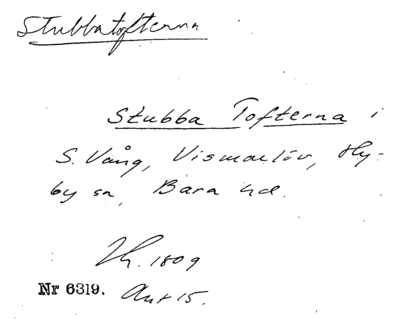 Stubbatofterna
Stubba Tofterna i
S. Vång, Vismarlöv, Hy-
by sn, Bara hd.
Lh. 1809
Nr 6319. Akt 15.